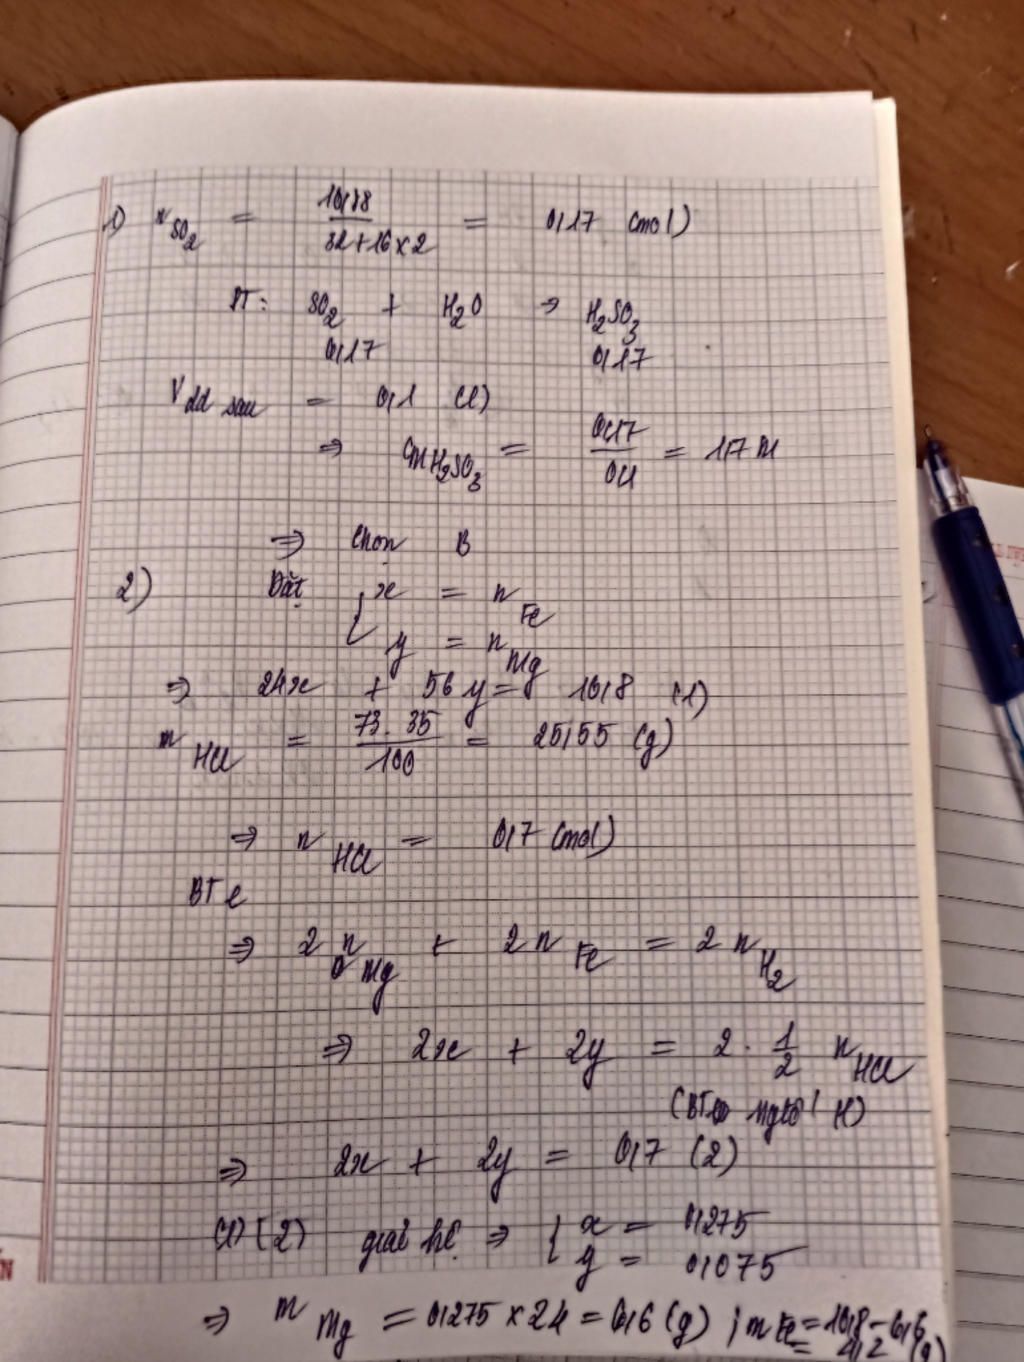 1) n SO2 = 10,88 / 32+16×2 = 0,17 (mol)
PT: SO2 + H2O → H2SO3
0,17 0,17
V dd sau = 0,1 (l)
⇒ CM H2SO3 = 0,17 / 0,1 = 1,7 M
⇒ Chọn B
2) Đặt { x = n Fe
y = n Mg
⇒ 24x + 56y = 10,8 (1)
m HCl = 73.35 / 100 = 25,55 (g)
⇒ n HCl = 0,7 (mol)
BT e
⇒ 2 n Mg + 2 n Fe = 2 n H2
⇒ 2x + 2y = 2 . 1/2 n HCl
(BT ngtố H)
⇒ 2x + 2y = 0,7 (2)
(1) (2) giải hệ ⇒ { x = 0,275
y = 0,075
⇒ m Mg = 0,275 × 24 = 6,6 (g) ; m Fe = 10,8 - 6,6
= 4,2 (g)